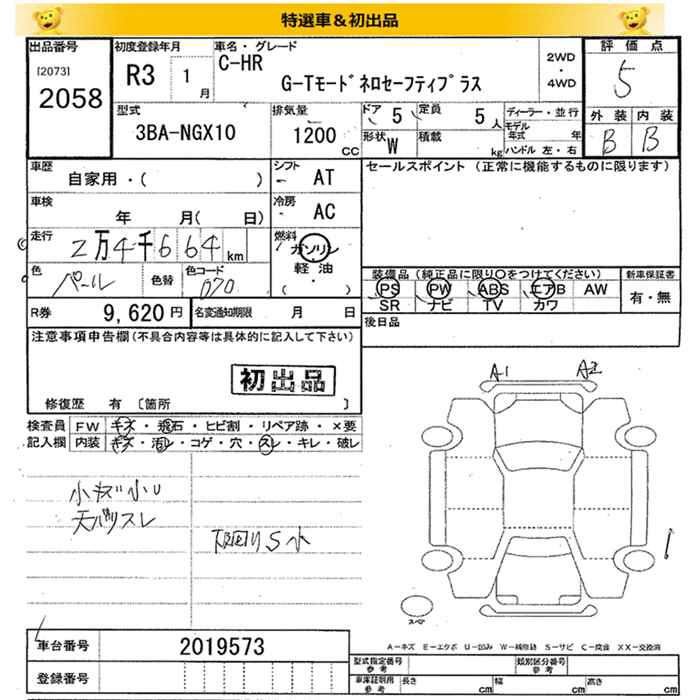 特選車＆初出品
出品番号 初度登録年月 車名・グレード 評価点
[2073] R3 1月 C-HR 2WD・4WD 5
2058 G-Tモード ネロセーフティプラス
外装 内装
型式 排気量 ドア 5 定員 5人 ディーラー・並行
3BA-NGX10 1200CC 形状 W 積載 kg モデル年式 年 B B
ハンドル 左・右
車歴 シフト セールスポイント (正常に機能するものに限ります)
自家用・( ) AT
車検 冷房
年 月( 日) AC
走行 2万4千664km 燃料 ガソリン・軽油・( )
色 パール 色替 色コード 070 装備品 (純正品に限り〇をつけてください) 新車保証書
PS PW ABS エアB AW 有・無
SR ナビ TV カワ
R券 9,620円 名変通知期限 月 日 後日品
注意事項申告欄 (不具合内容等は具体的に記入して下さい)
初出品
修復歴 有 〔箇所 〕
A1 A2
検査員 FW キズ・飛石・ヒビ割・リペア跡・×要
記入欄 内装 キズ・汚レ・コゲ・穴・スレ・キレ・破レ
小キズ小U
天バリスレ
下回りS小
スペア
車台番号 2019573
A－キズ E－エクボ U－凹み W－補修跡 S－サビ C－腐食 XX－交換済
登録番号
型式指定番号 参考 類別区分番号 参考
車庫証明用 参考 長さ cm 幅 cm 高さ cm